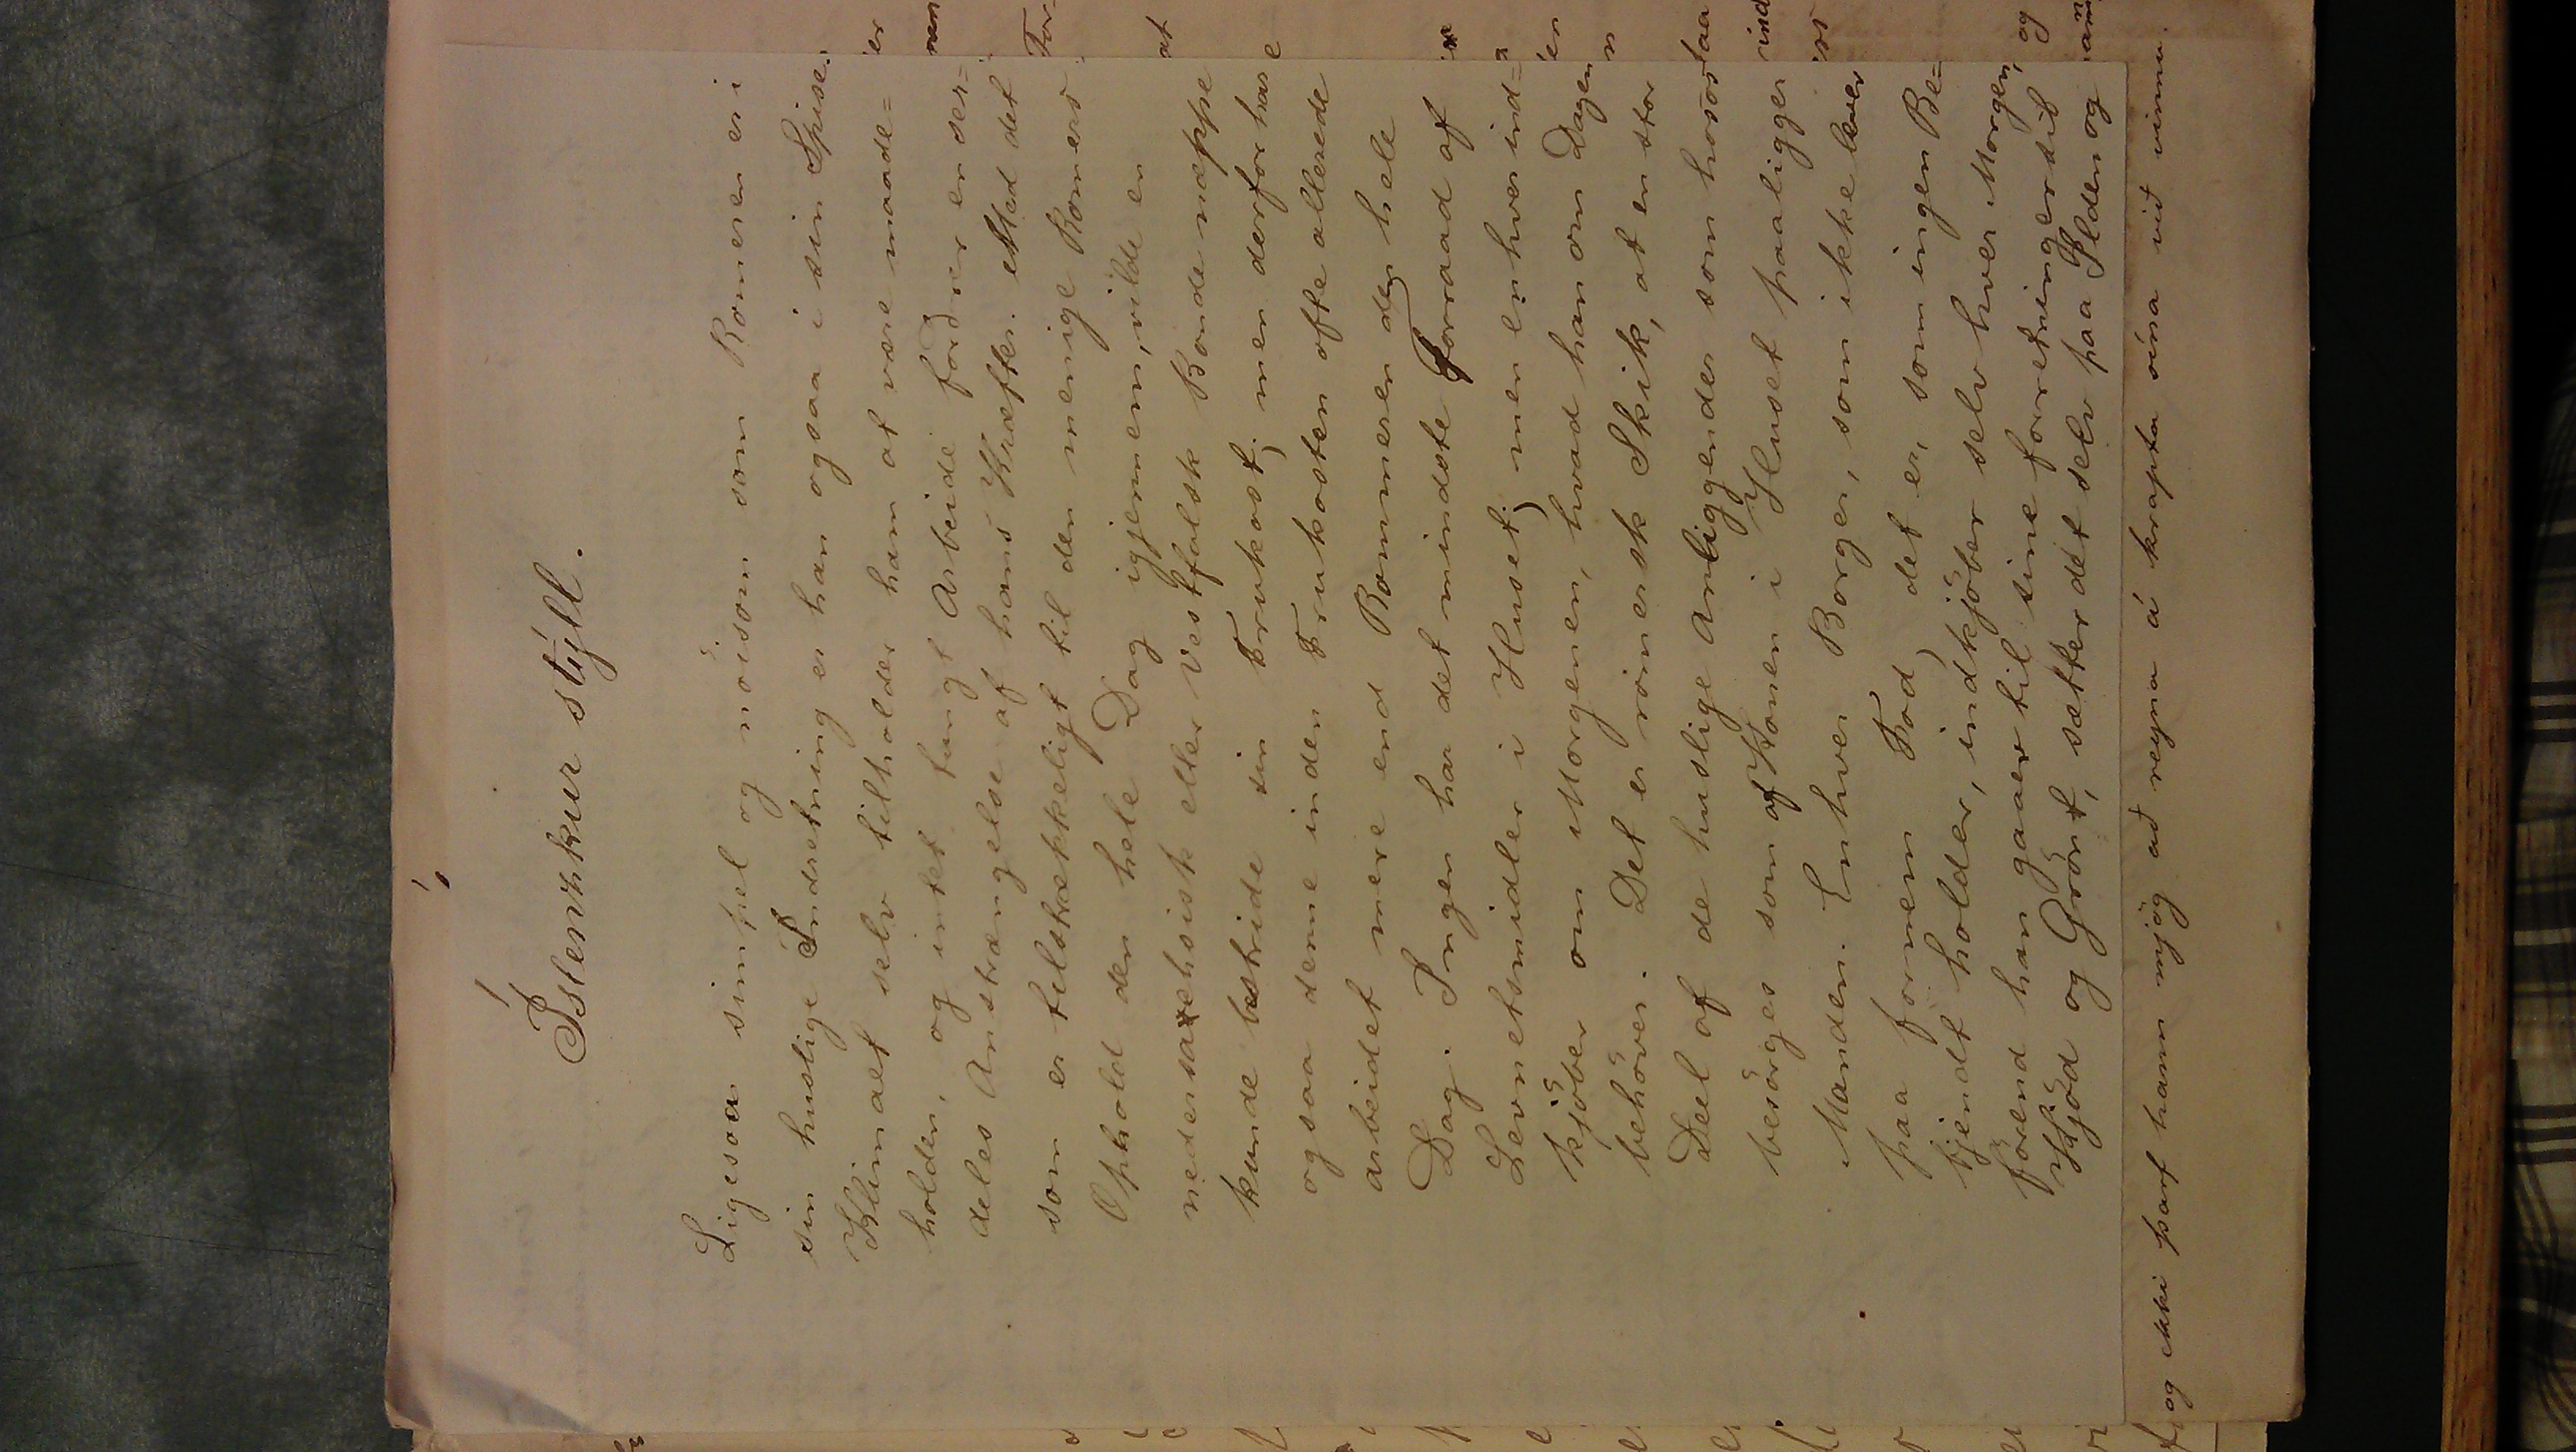 Íslenzkur stýll.
Ligesaa simpel og nöisom som Romeren er i
sin huslige Indretning er han ogsaa i sin Spise.
Klimaet selv tilholder ham at være maade=
holden, og intet tungt Arbeide fordrer en sær=
deles Anstrængelse af hans Kræfter. Med det
som er tilstrækkeligt til den menige Romers
Ophold den hele Dag igjennem, vilde en
nedersachsisk eller Vestfalsk Bonde næppe
kunde bestride sin Frukost; men derfor har
ogsaa denne inden Frukosten ofte allerede
arbeidet mere end Rommeren den hele
Dag. Ingen har det mindste Forraad af
Levnetsmidler i Huset; men enhver ind=
kjöber om Morgenen, hvad han om Dagen
behöver. Det er römersk Skik, at en stor
Deel af de huslige Anliggender som hos os
besörges som af Konen i Huset paaligger
Manden. Enhver Borger, som ikke lever
paa fornem Fod, det er, som ingen Be=
tjendt holder, indkjöber selv hver Morgen,
förend han gaaer til sine forretninger sit
Kjöd og Grönt, sætter det selv paa Ilden og
og ekki þarf hann mjög að reyna á krapta sína við vinnu.